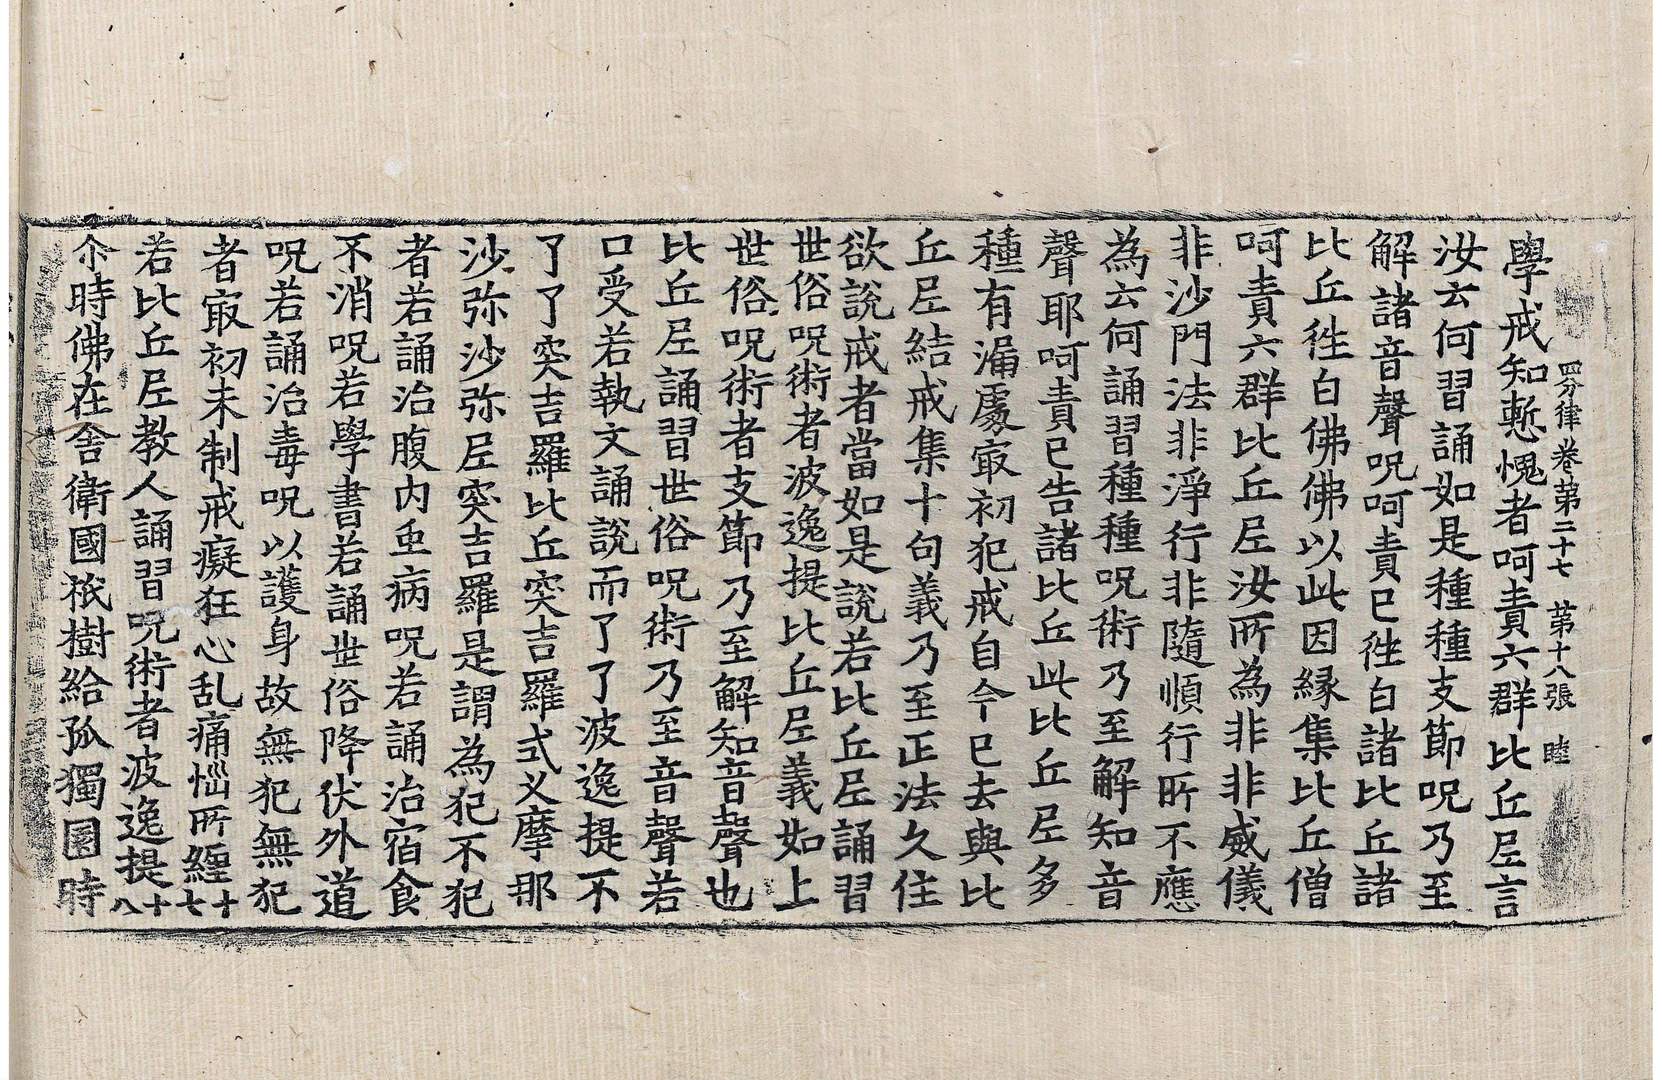 四分律卷第二十七 第十八張 睦
學戒知慙愧者呵責六群比丘尼言
汝云何習誦如是種種支節呪乃至
解諸音聲呪呵責已徃白諸比丘諸
比丘徃白佛佛以此因緣集比丘僧
呵責六群比丘尼汝所為非非威儀
非沙門法非淨行非隨順行所不應
為云何誦習種種呪術乃至解知音
聲耶呵責已告諸比丘此比丘尼多
種有漏處冣初犯戒自今已去與比
丘尼結戒集十句義乃至正法久住
欲說戒者當如是說若比丘尼誦習
世俗呪術者波逸提比丘尼義如上
世俗呪術者支節乃至解知音聲也
比丘尼誦習世俗呪術乃至音聲若
口受若執文誦說而了了波逸提不
了了突吉羅比丘突吉羅式叉摩那
沙弥沙弥尼突吉羅是謂為犯不犯
者若誦治腹内虫病呪若誦治宿食
不消呪若學書若誦世俗降伏外道
呪若誦治毒呪以護身故無犯無犯
者冣初未制戒癡狂心乱痛惱所纏十七
若比丘尼教人誦習呪術者波逸提十八
尒時佛在舍衛國祇樹給孤獨園時